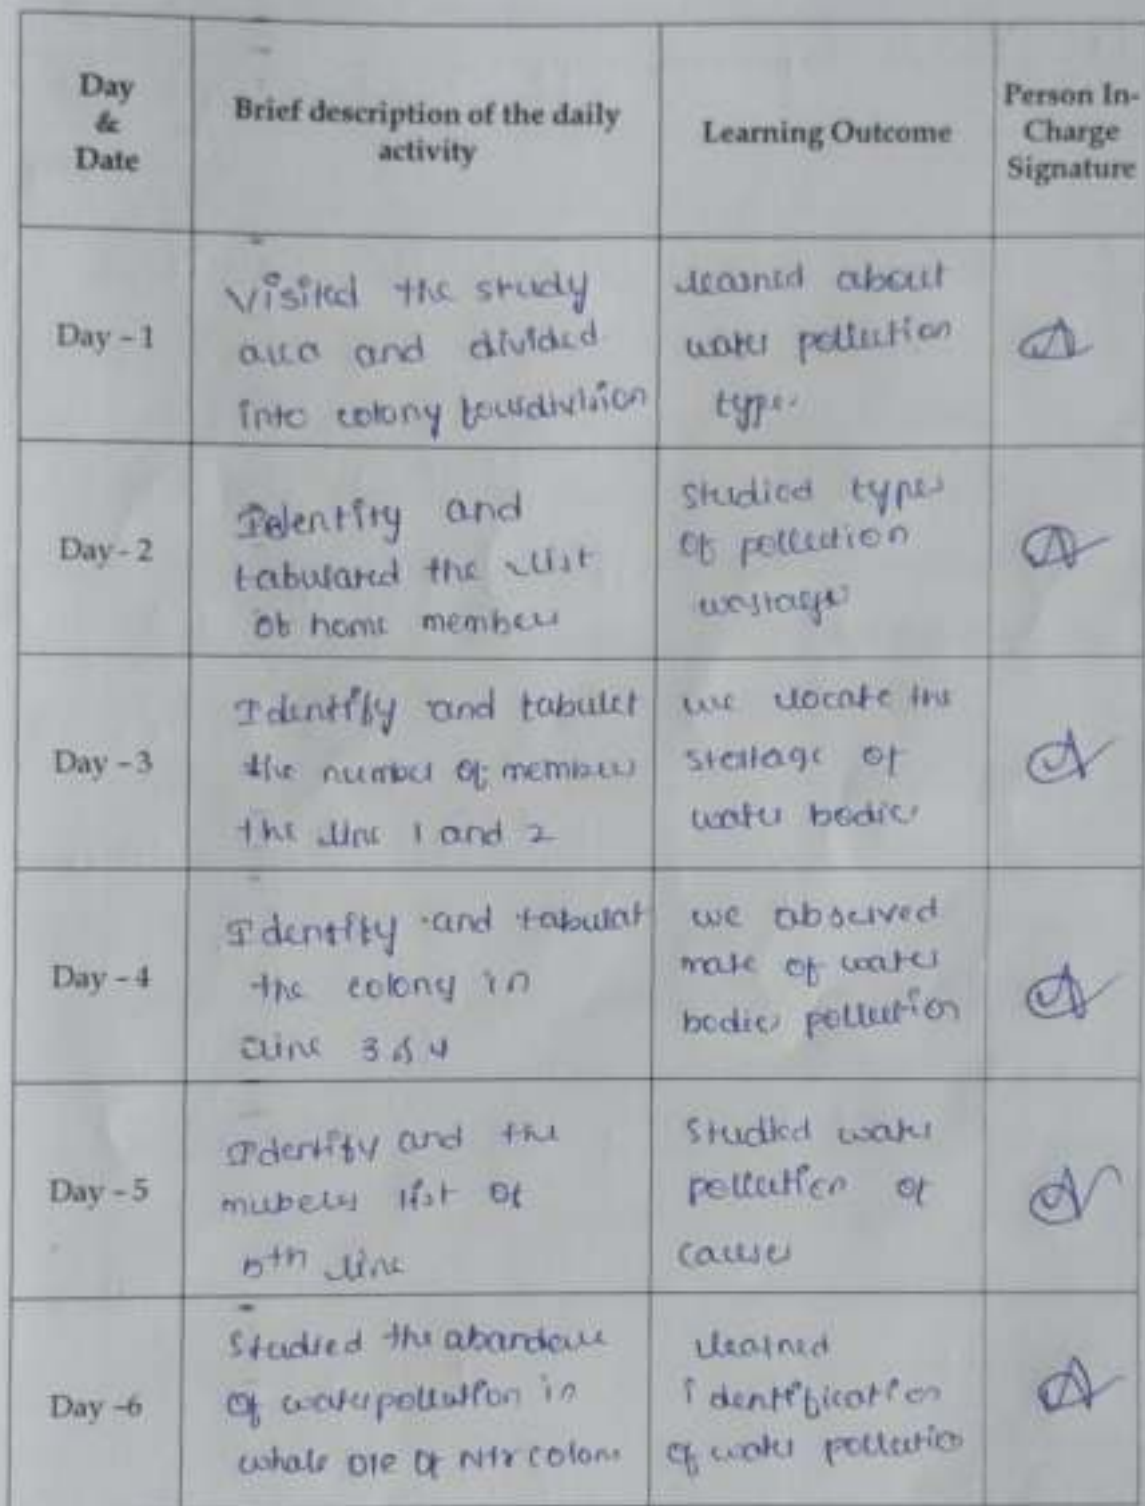 Day
&
Date
Brief description of the daily
activity
Learning Outcome
Person In-
Charge
Signature
Day - 1
Visited the study
area and divided
into colony
learned about
water pollution
type.
Day - 2
Identity and
tabulated the list
of home members
Studied types
of pollution
wastages
Day - 3
Identify and tabulet
the number of members
the line 1 and 2
we locate the
of
water bodies
Day - 4
Identity and tabulat
the colony in
line 3 & 4
we abserved
of water
bodies pollution
Day - 5
Identify and the
list of
line
Studied water
pollution of
causes
Day -6
Studied the
of water pollution in
whale of Ntr colony
learned
identification
of water pollution